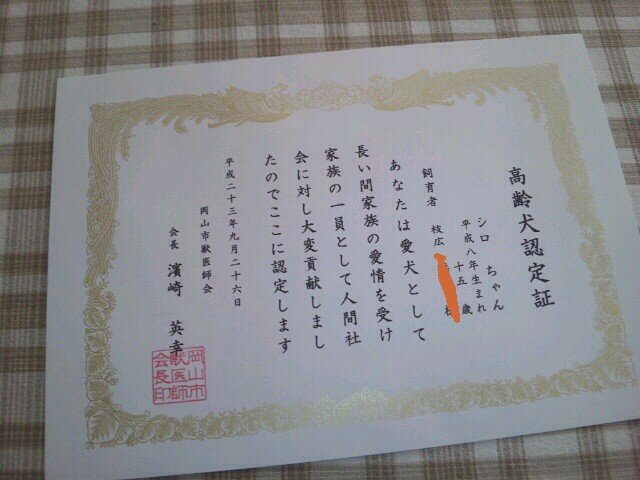 高齢犬認定証
シロ ちゃん
平成八年生まれ
十五 歳
飼育者 枝広
あなたは愛犬として
長い間家族の愛情を受け
家族の一員として人間社
会に対し大変貢献しまし
たのでここに認定します
平成二十三年九月二十六日
岡山市獣医師会
会長 濱崎 英幸
岡山市
獣医師
会長印